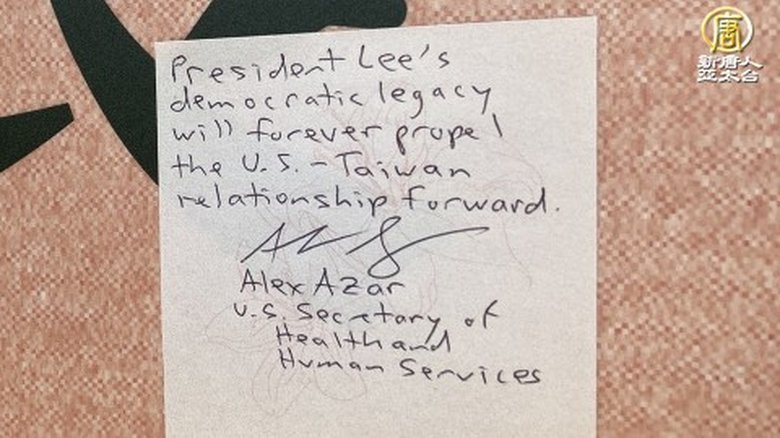 President Lee's
democratic legacy
will forever propel
the U.S.-Taiwan
relationship forward.
Alex Azar
U.S. Secretary of
Health and
Human Services
唐
新唐人
亞太台